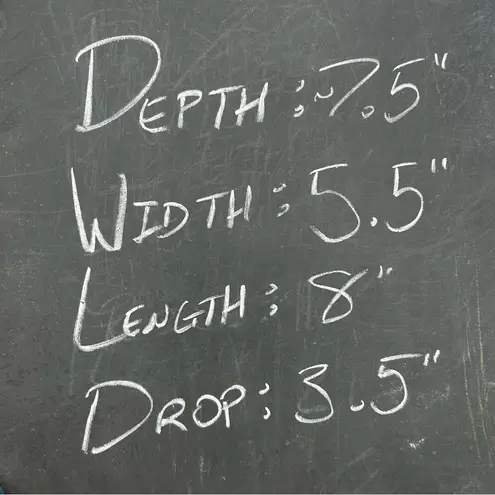 DEPTH: ~7.5"
WIDTH: 5.5"
LENGTH: 8"
DROP: 3.5"